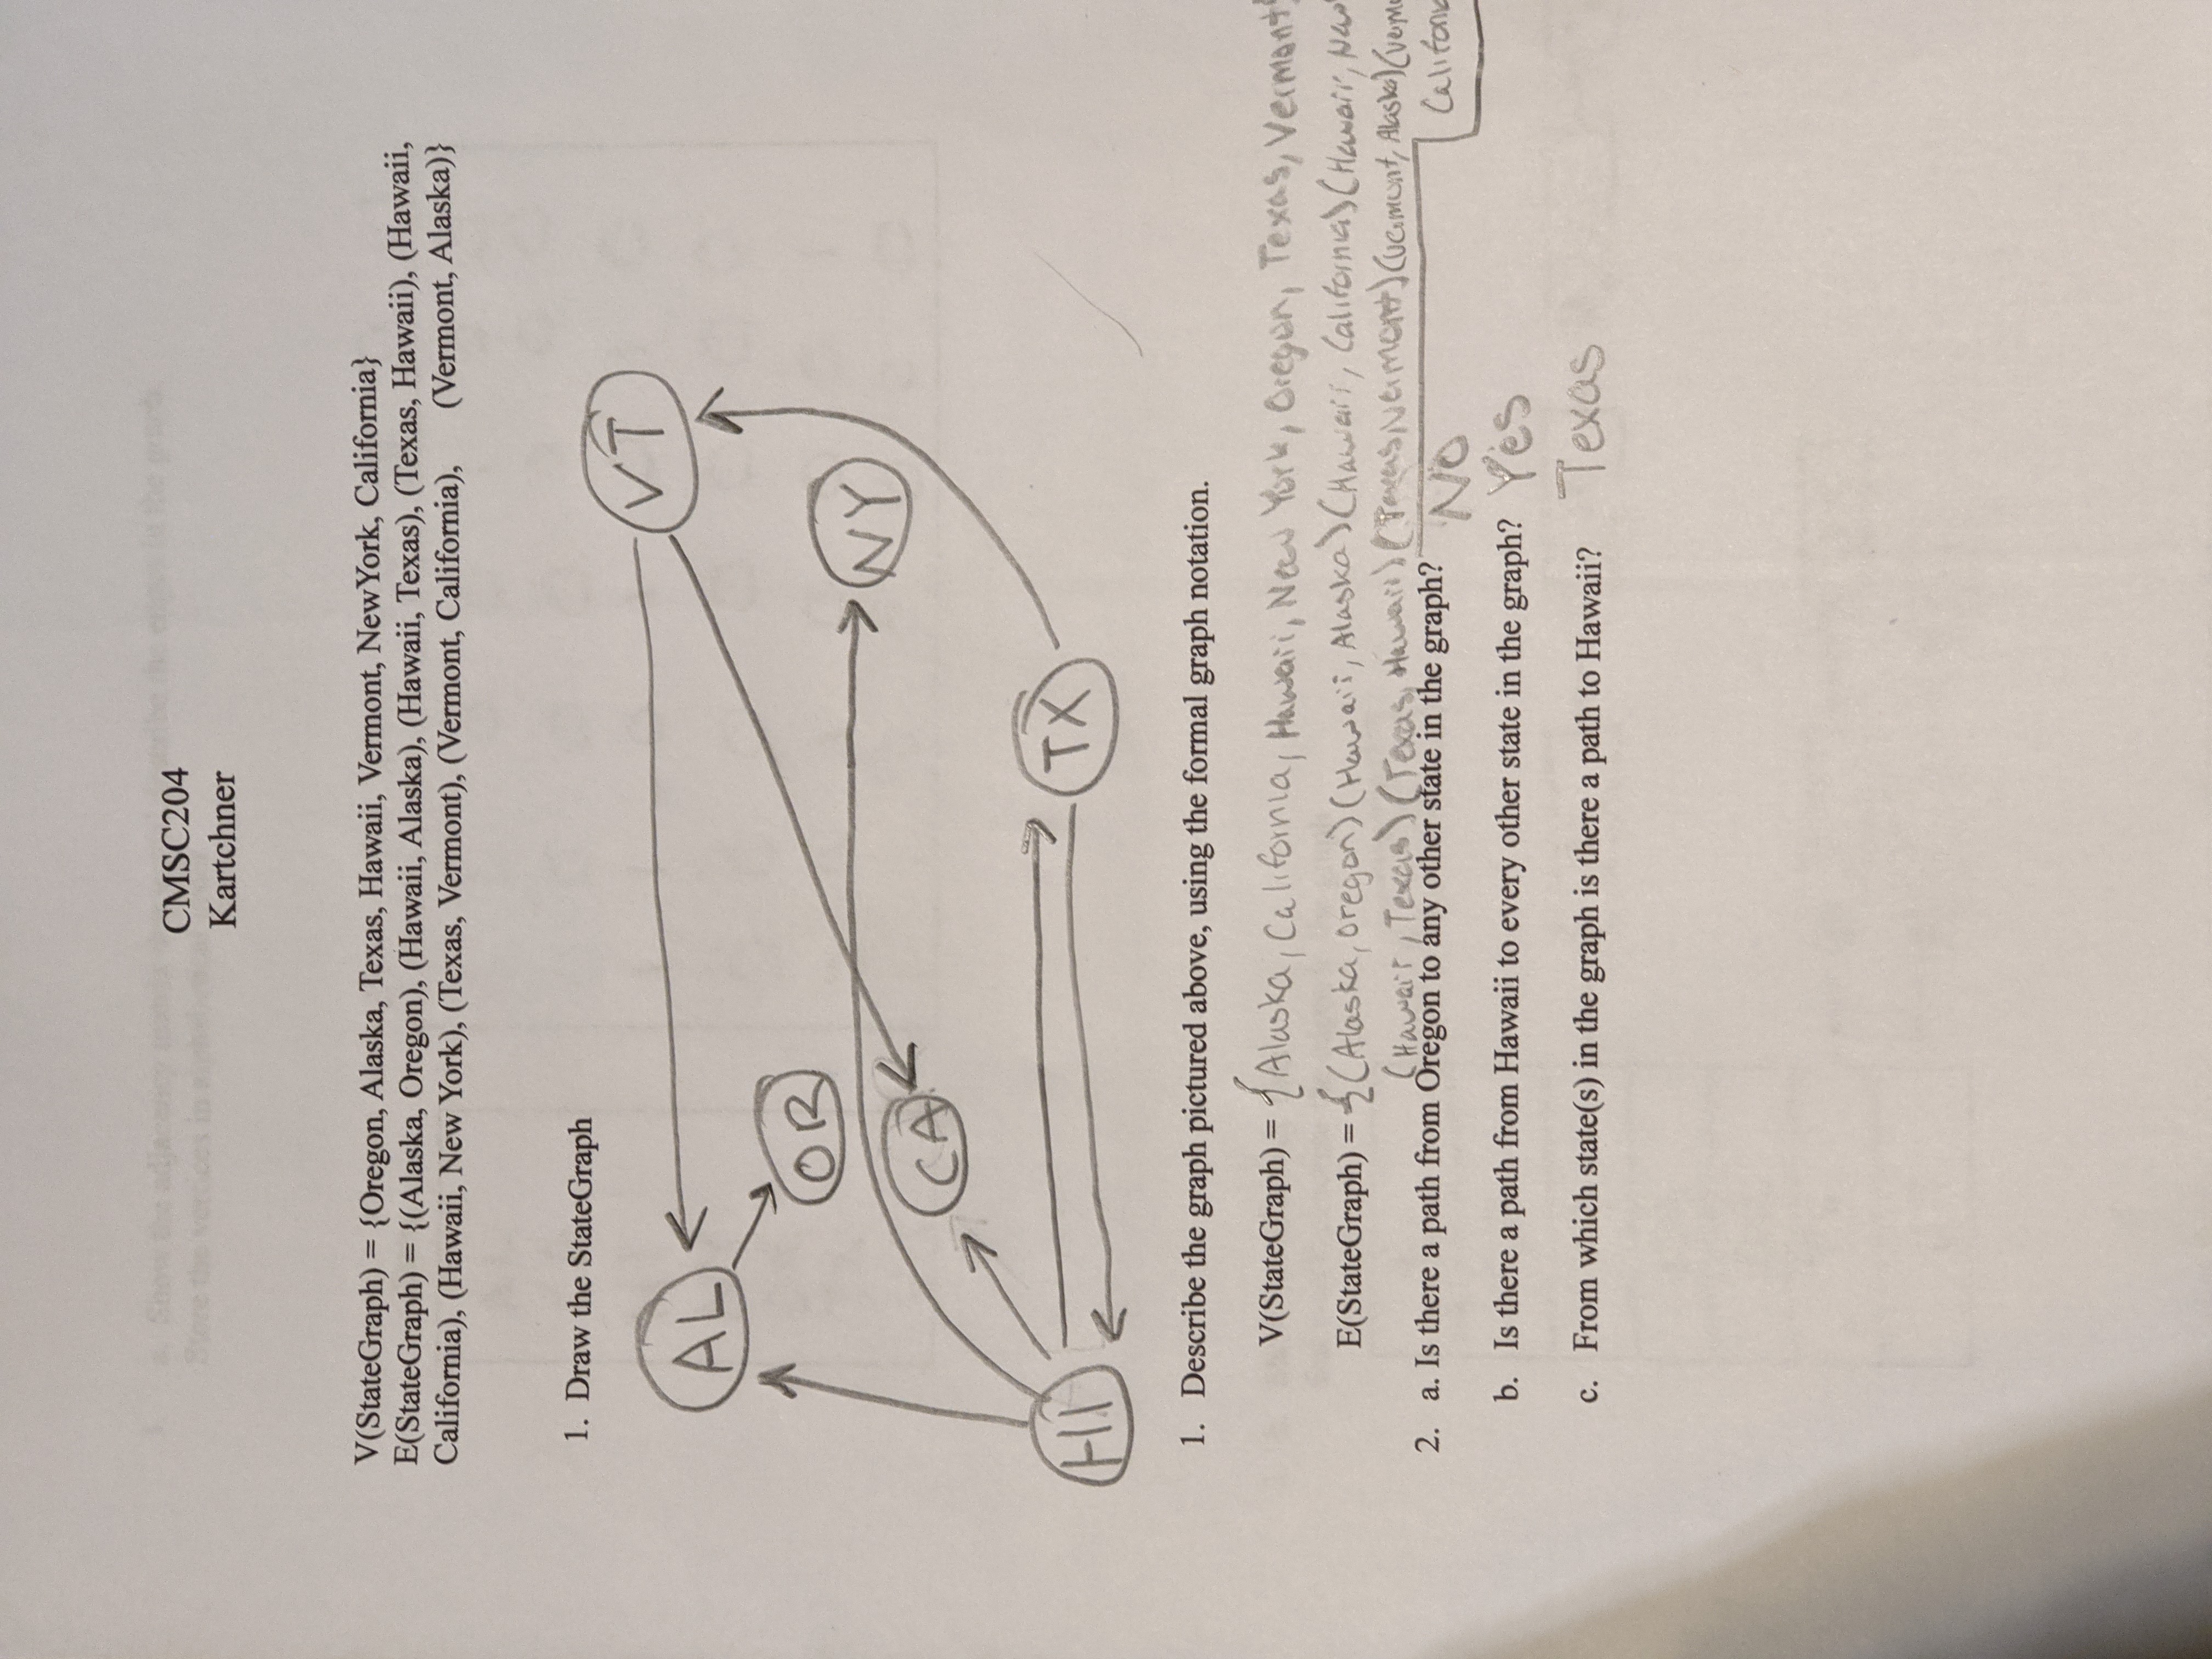 CMSC204
Kartchner
V(StateGraph) = {Oregon, Alaska, Texas, Hawaii, Vermont, NewYork, California}
E(StateGraph) = {(Alaska, Oregon), (Hawaii, Alaska), (Hawaii, Texas), (Texas, Hawaii), (Hawaii,
California), (Hawaii, New York), (Texas, Vermont), (Vermont, California), (Vermont, Alaska)}
1. Draw the StateGraph
VT
AL
OR
NY
CA
HI
TX
1. Describe the graph pictured above, using the formal graph notation.
V(StateGraph) = {Alaska, California, Hawaii, New York, Oregon, Texas, Vermont}
E(StateGraph) = {(Alaska, Oregon)(Hawaii, Alaska)(Hawaii, California)(Hawaii, New
(Hawaii, Texas)(Texas, Hawaii)(Texas, Vermont)(Vermont, Alaska)(Verm
2. a. Is there a path from Oregon to any other state in the graph? No
Californ
b. Is there a path from Hawaii to every other state in the graph? Yes
c. From which state(s) in the graph is there a path to Hawaii? Texas